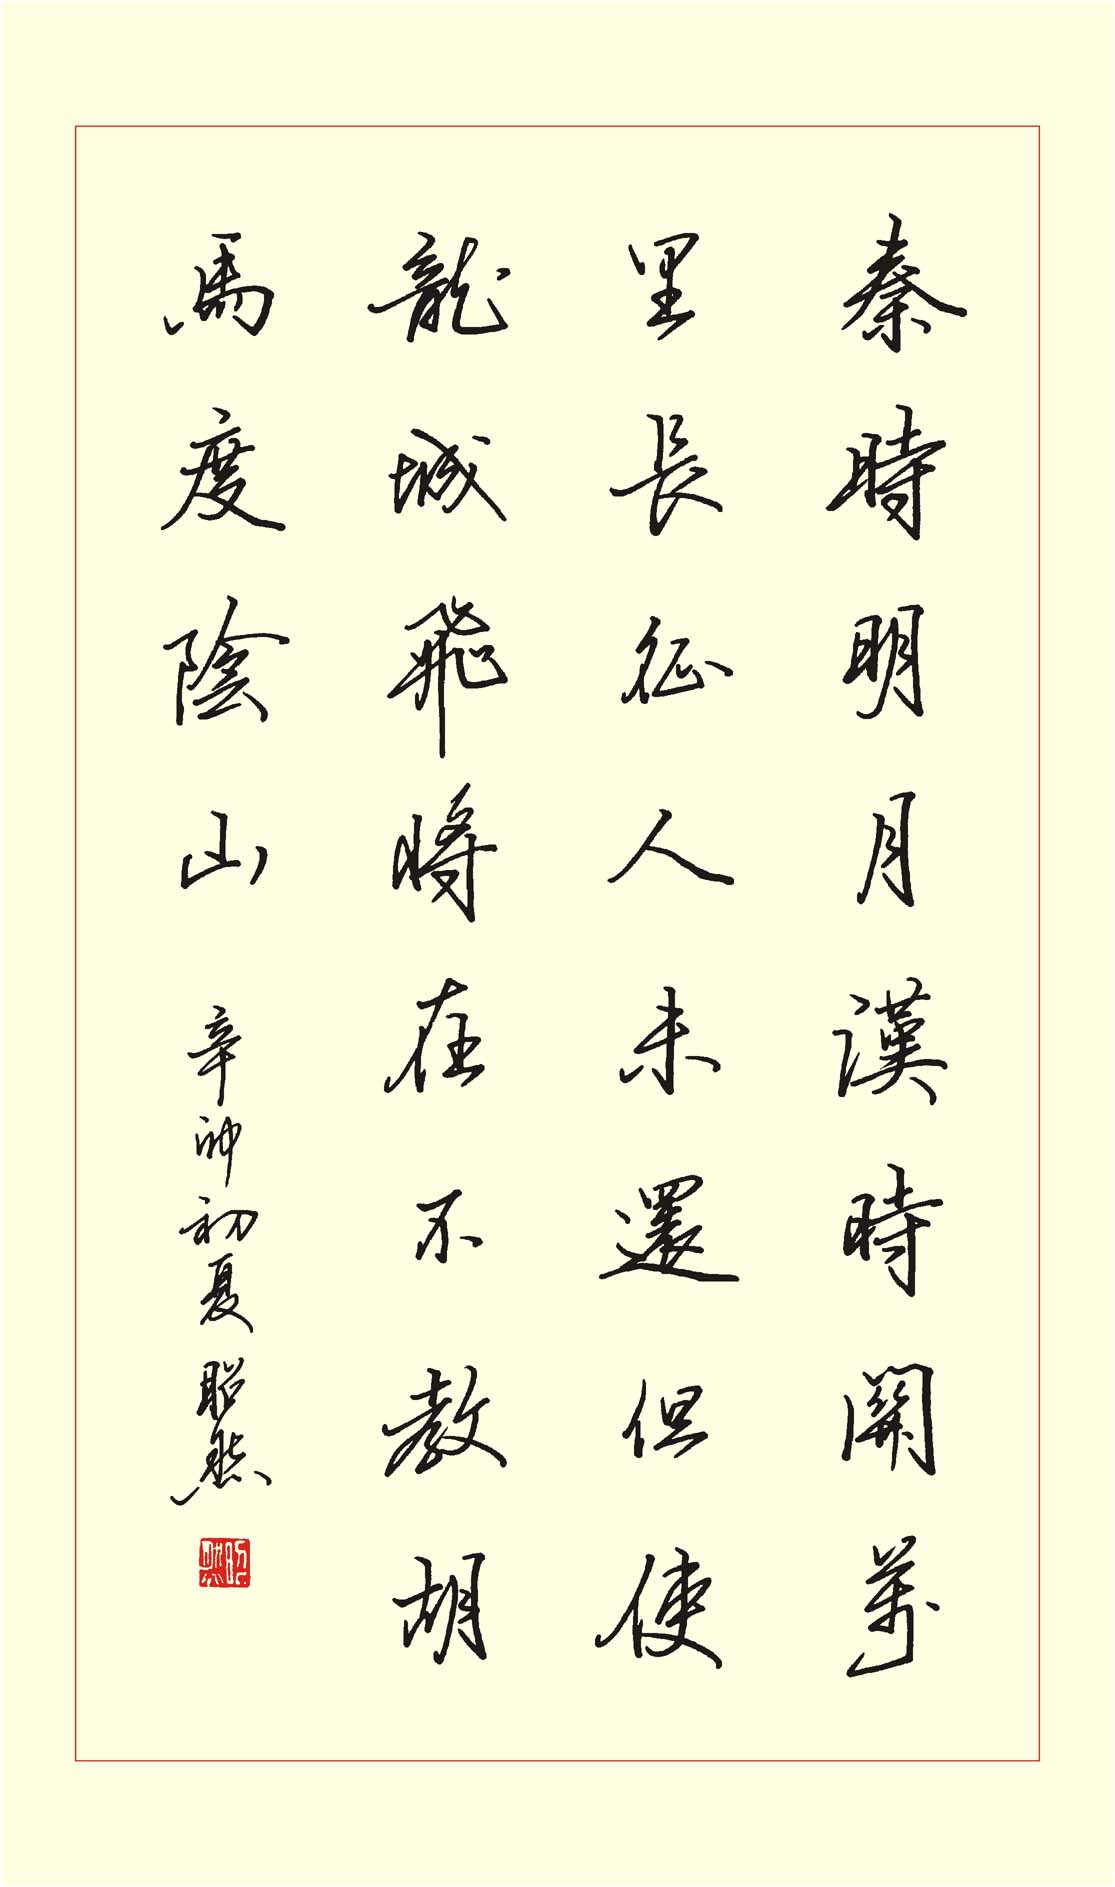 秦時明月漢時関萬
里長征人未還但使
龍城飛將在不教胡
馬度陰山 辛卯初夏 昭然
昭然